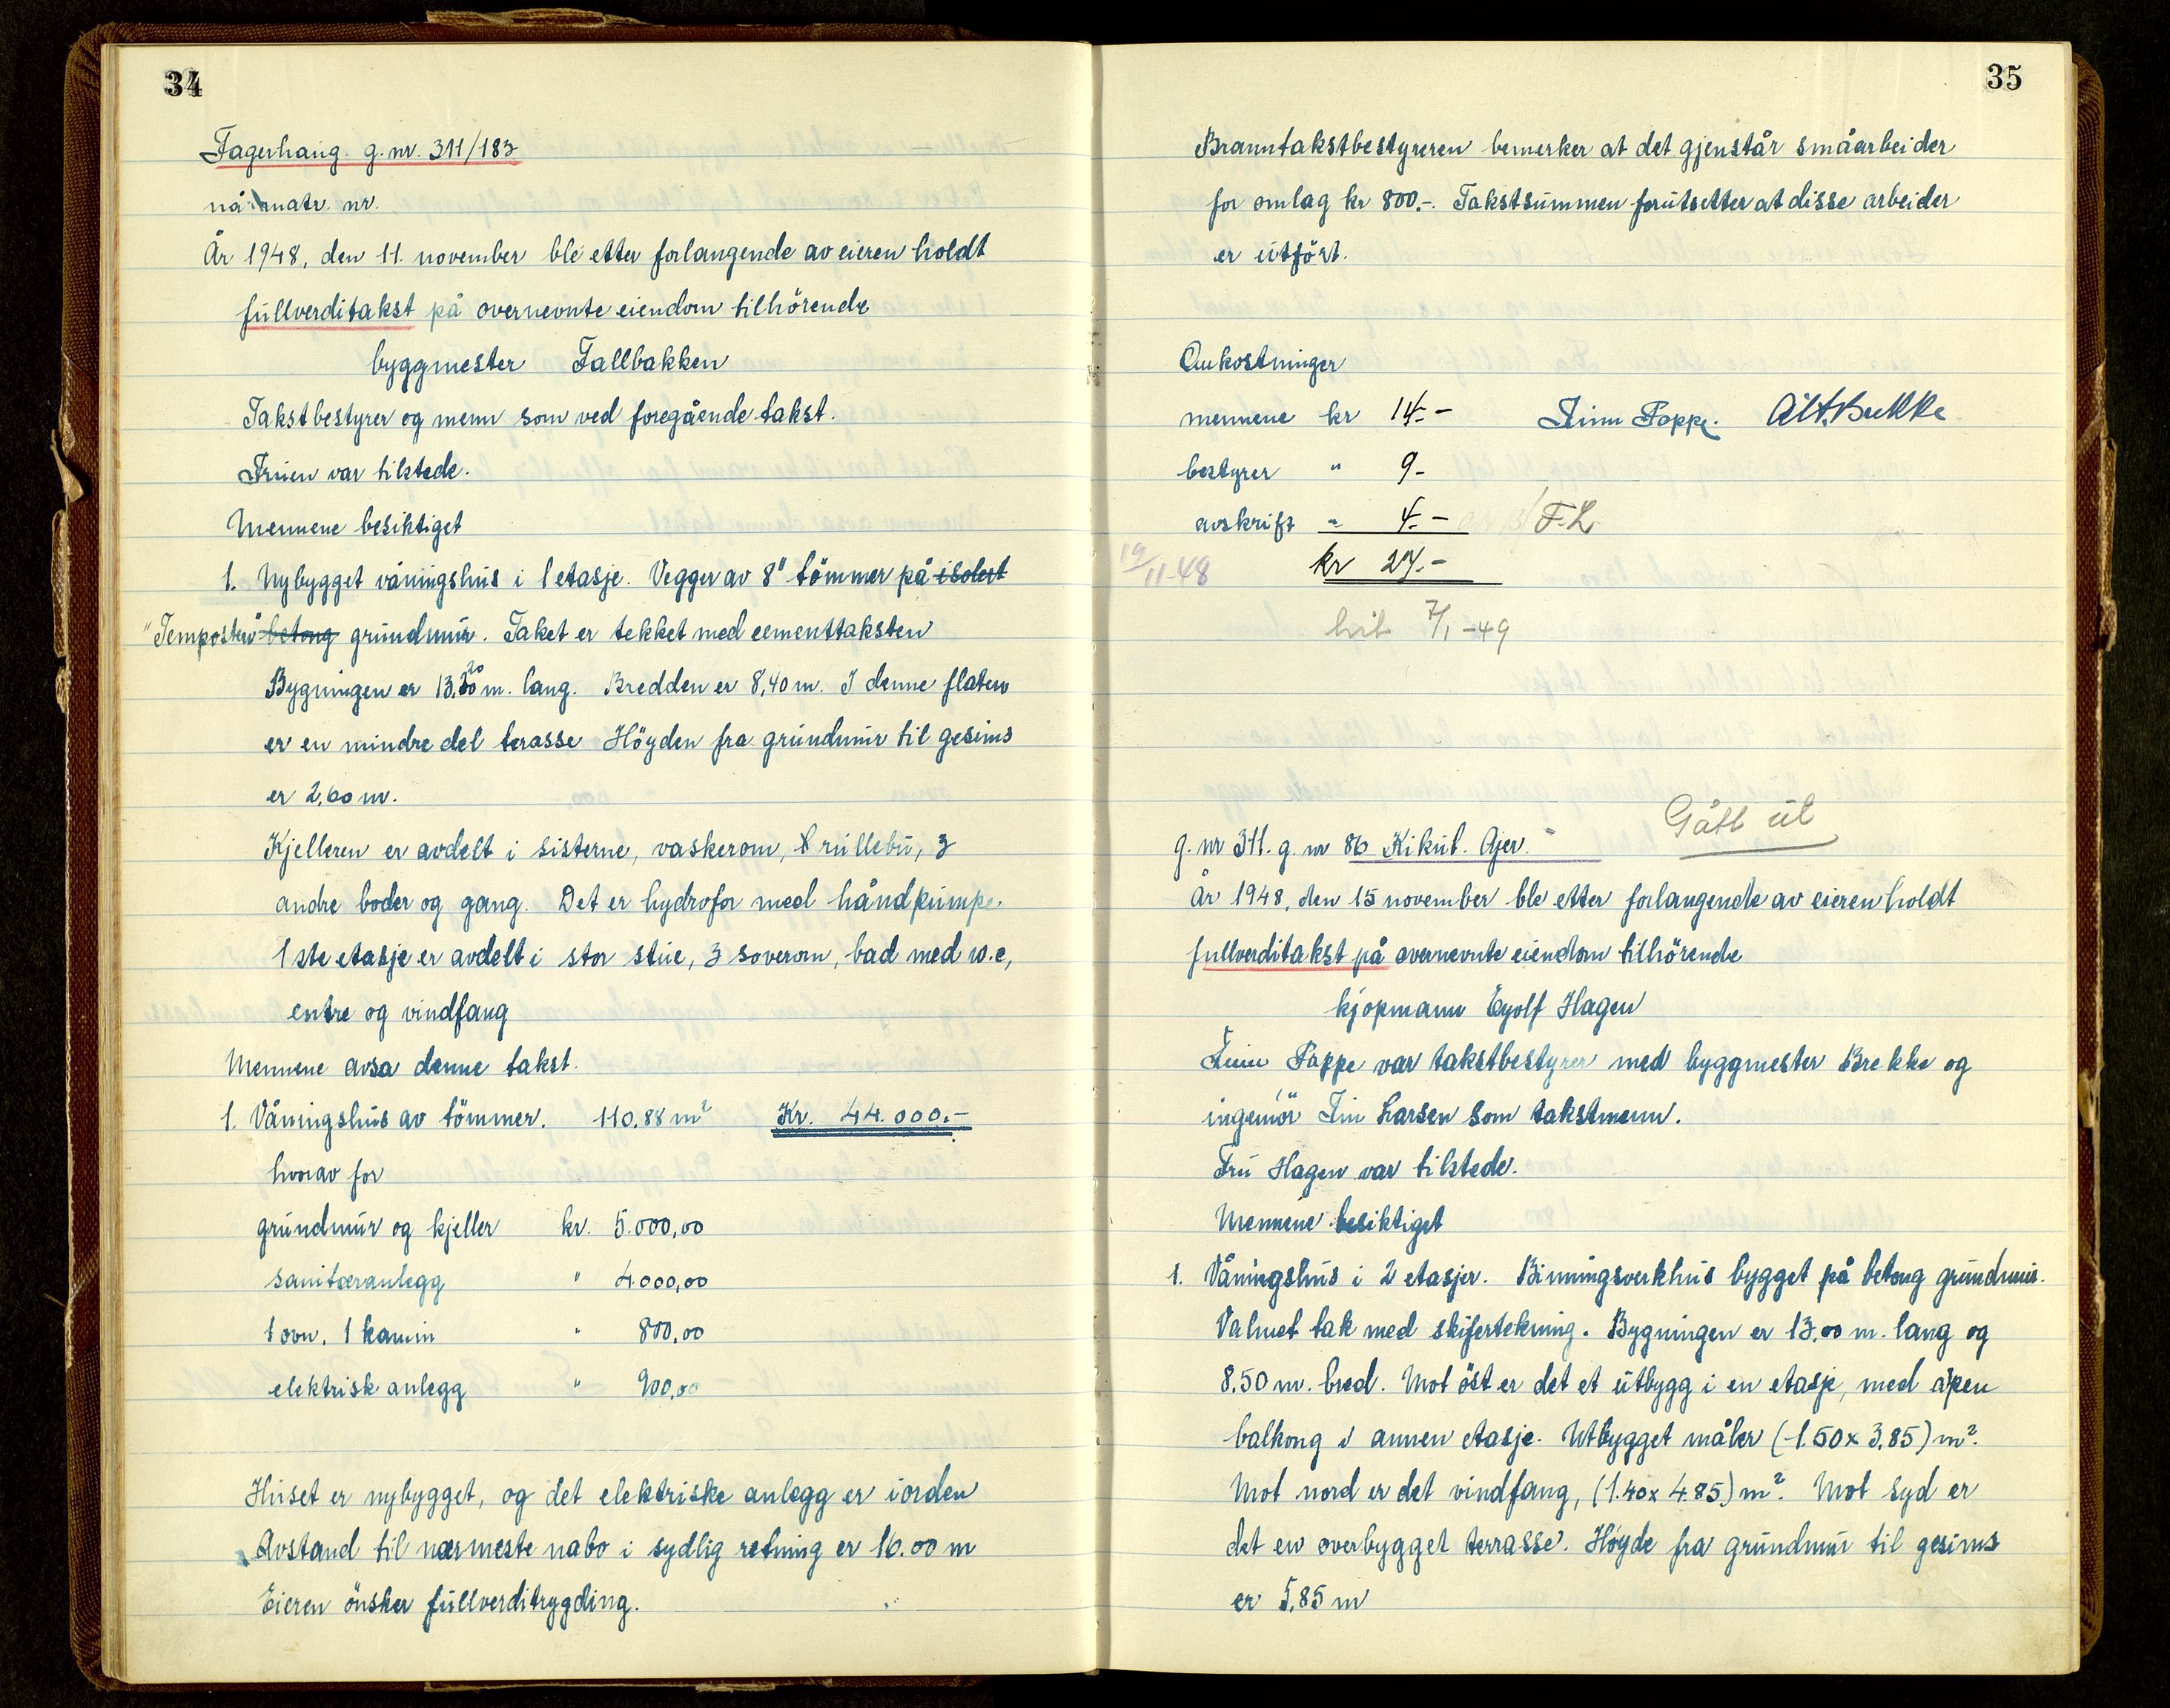 34
Fagerhaug g.nr. 311/183
nå matr. nr.
År 1948, den 11. november ble etter forlangende av eieren holdt
fullverditakst på overnevnte eiendom tilhörende
byggmester Fallbakken
Takstbestyrer og menn som ved foregående takst.
Fruen var tilstede.
Mennene besiktiget
1. Nybygget våningshus i 1 etasje. Vegger av 8" tömmer på isolert
"Tempostein" betong grundmur. Taket er tekket med cementtaksten
Bygningen er 13.20 m. lang. Bredden er 8,40 m. I denne flaten
er en mindre del terasse Höyden fra grundmur til gesims
er 2,60 m.
Kjelleren er avdelt i sisterne, vaskerom, rullebu, 3
andre boder og gang. Det er hydrofor med håndpumpe.
1ste etasje er avdelt i stor stue, 3 soverom, bad med w.c,
entre og vindfang
Mennene avsa denne takst.
1. Våningshus av tömmer. 110,88 m² Kr. 44.000.-
hvorav for
grundmur og kjeller kr. 5.000,00
sanitæranlegg " 4.000,00
1 ovn, 1 kamin " 800,00
elektrisk anlegg " 900,00
Huset er nybygget, og det elektriske anlegg er iorden
Avstand til nærmeste nabo i sydlig retning er 16.00 m
Eieren önsker fullverditrygding.
35
Branntakstbestyreren bemerker at det gjenstår småarbeider
for omlag kr 800.-. Takstsummen forutsetter at disse arbeider
er utfört.
Omkostninger
mennene kr 14.- Finn Poppe. Alf. Brekke
bestyrer " 9-
avskrift " 4.- F.L.
19/11-48 kr 27.-
hit 7/1-49
Gått ut
g. nr 311. g. nr 86 Kikut. Ajer.
År 1948, den 15 november ble etter forlangende av eieren holdt
fullverditakst på overnevnte eiendom tilhörende
kjöpmann Eyolf Hagen
Finn Poppe var takstbestyrer med byggmester Brekke og
ingeniör Finn Larsen som takstmenn.
Fru Hagen var tilstede.
Mennene besiktiget
1. Våningshus i 2 etasjer. Binningsverkhus bygget på betong grundmur.
Valmet tak med skifertekning. Bygningen er 13,00 m. lang og
8.50 m. bred. Mot öst er det et utbygg i en etasje, med åpen
balkong i annen etasje. Utbygget måler (1.50 x 3,85) m².
Mot nord er det vindfang, (1.40 x 4.85) m². Mot syd er
det en overbygget terrasse. Höyde fra grundmur til gesims
er 5,85 m